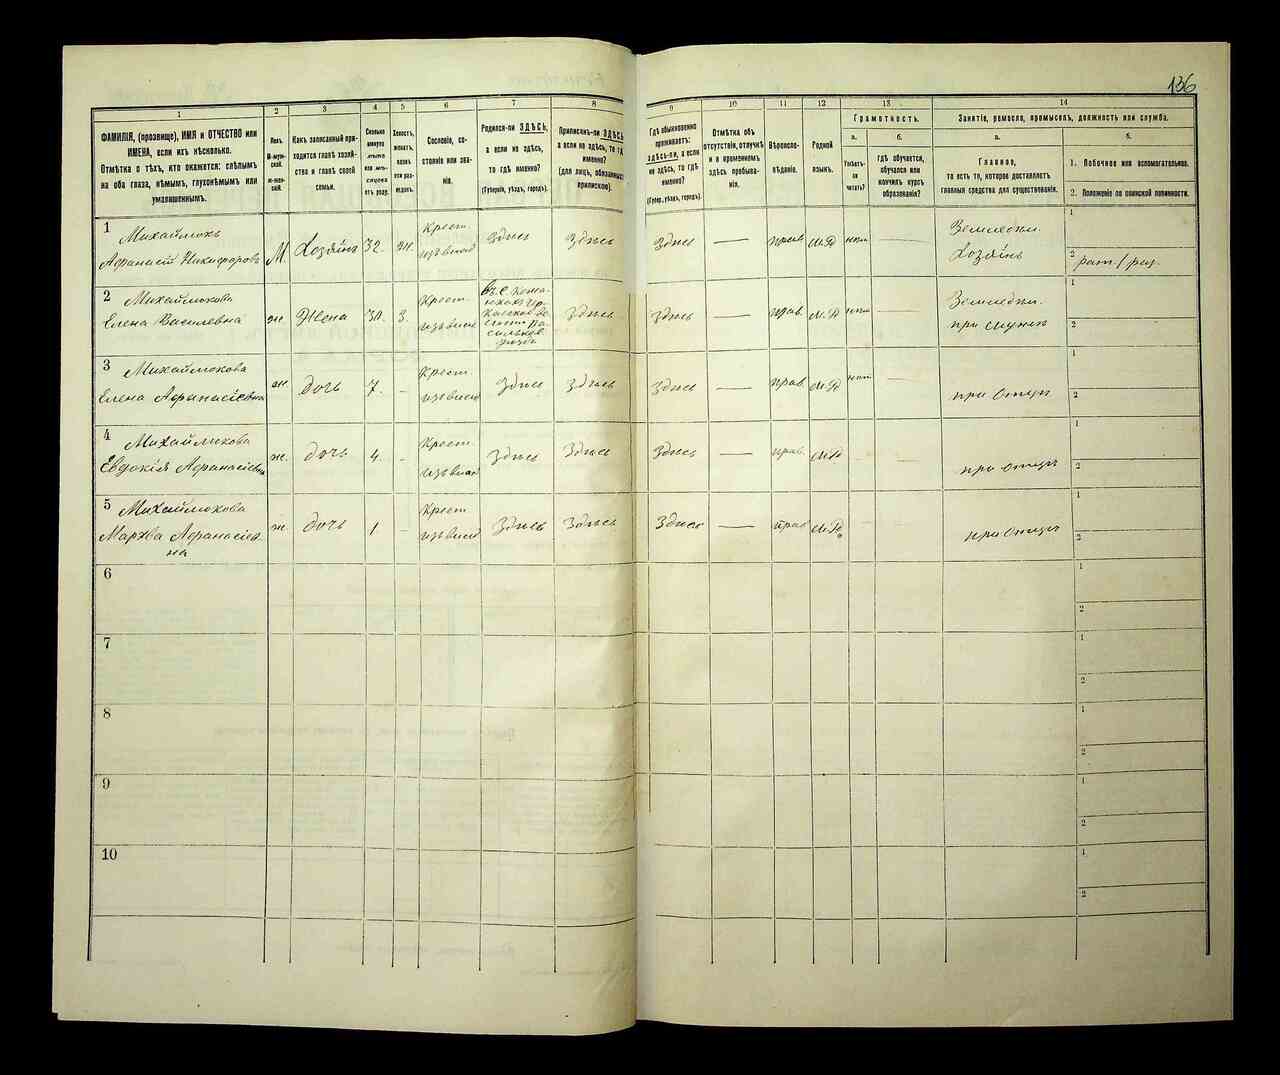 136
1
2
3
4
5
6
7
8
9
10
11
12
13
14
ФАМИЛІЯ, (прозвище), ИМЯ и ОТЧЕСТВО или
ИМЕНА, если ихъ нѣсколько.
Отмѣтка о тѣхъ, кто окажется: слѣпымъ
на оба глаза, нѣмымъ, глухонѣмымъ или
умалишеннымъ.
Полъ.
М-муж-
ской.
ж-жен-
скій.
Какъ записанный при-
ходится главѣ хозяй-
ства и главѣ своей
семьи.
Сколько
минуло
лѣтъ
или мѣ-
сяцевъ
отъ роду.
Холостъ,
женатъ,
вдовъ
или раз-
веденъ.
Сословіе, со-
стояніе или зва-
ніе.
Родился-ли ЗДѢСЬ,
а если не здѣсь,
то гдѣ именно?
(Губернія, уѣздъ, городъ).
Приписанъ-ли ЗДѢСЬ,
а если не здѣсь, то гдѣ
именно?
(для лицъ, обязанныхъ
припискою).
Гдѣ обыкновенно
проживаетъ:
ЗДѢСЬ-ли, а если
не здѣсь, то гдѣ
именно?
(Губер., уѣздъ, городъ).
Отмѣтка объ
отсутствіи, отлучкѣ
и о временномъ
здѣсь пребыва-
ніи.
Вѣроиспо-
вѣданіе.
Родной
языкъ.
Грамотность.
а.
б.
Умѣетъ-
ли
читать?
гдѣ обучается,
обучался или
кончилъ курсъ
образованія?
Занятіе, ремесло, промыселъ, должность или служба.
а.
б.
Главное,
то есть то, которое доставляетъ
главныя средства для существованія.
1. Побочное или вспомогательное.
2. Положеніе по воинской повинности.
1
Михайлюкъ
Афанасій Никифоровъ
М.
Хозяинъ
32.
ж.
Крест.
Здѣсь
Здѣсь
Здѣсь
—
прав
М.Р
нѣт
Земледѣл.
Хозяинъ
1
2
2
Михайлюкова
Елена Василевна
ж.
Жена
30.
З.
Крест.
Здѣсь
Здѣсь
—
прав.
М.Р
нѣт
Земледѣл.
при мужѣ
1
2
3
Михайлюкова
Елена Афанасіевна
ж.
дочь
7.
-
Крест.
Здѣсь
Здѣсь
Здѣсь
—
прав
М.Р
нѣт
при Отцѣ
1
2
4
Михайлюкова
Евдокія Афанасіевна
ж.
дочь
4.
-
Крест.
Здѣсь
Здѣсь
Здѣсь
—
прав.
М.Р
при Отцѣ
1
2
5
Михайлюкова
Мархва Афанасіев-
на
ж.
дочь
1
-
Крест
Здѣсь
Здѣсь
Здѣсь
—
прав
М.Р.
при Отцѣ
1
2
6
1
2
7
1
2
8
1
2
9
1
2
10
1
2